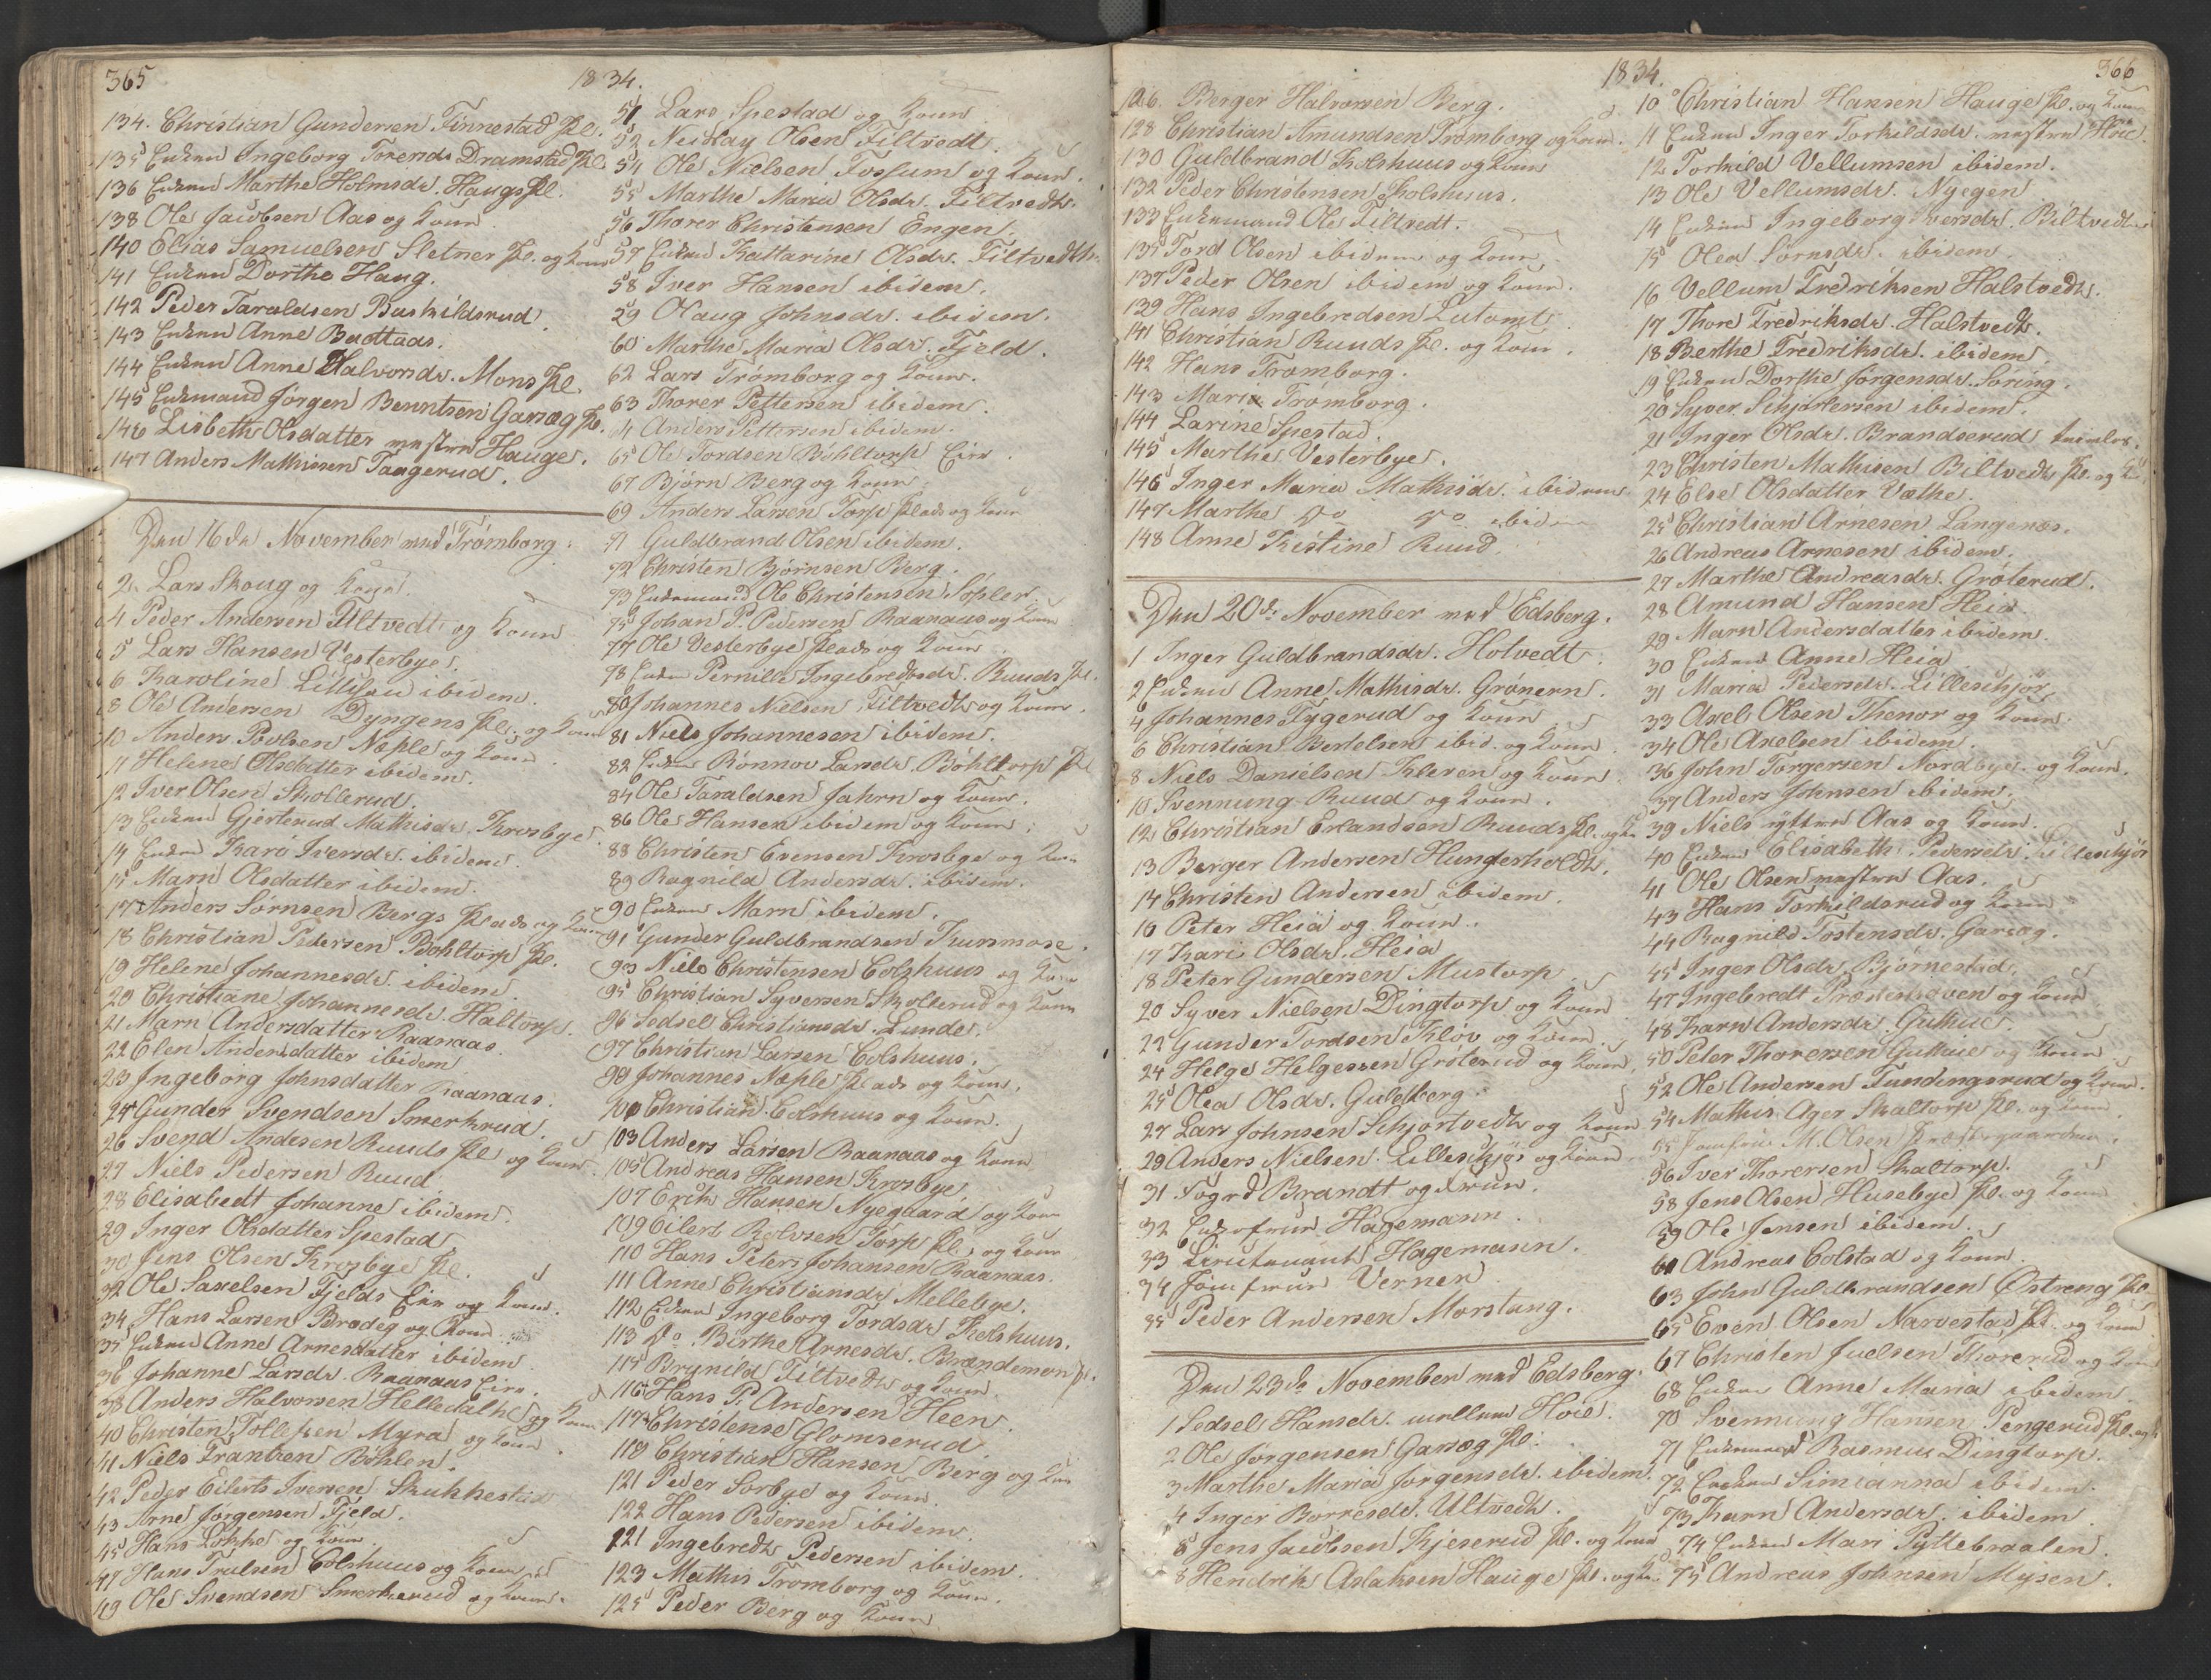 365
1834.
134. Christian Gundersen Finnestad Pl.
135 Enken Ingeborg Toresdr Dramstad Pl.
136 Enken Marthe Holmsdr. Haugs Pl.
138 Ole Jacobsen Aas og Kone
140 Elias Samuelsen Sletner Pl. og Kone
141 Enken Dorthe Haug.
142 Peder Taraldsen Buskildsrud.
143 Enken Anne
144 Enken Anne Halvorsdr. Mons Pl.
145 Enkemand Jørgen Berntsen Garseg Pl.
146 Lisbeth Olsdatter mestre Hauge.
147 Anders Mathissen Taagerud.
Den 16de November ved Trømborg.
2. Lars Skoug og Kone.
4 Peder Andersen Ultvedt og Kone
5 Lars Hansen Vesterbye.
6 Karoline ibidem.
8 Ole Andersen Dyngens Pl. og Kone
10 Anders Povlsen Næple og Kone.
11 Helene Olsdatter ibidem.
12 Iver Olsen Skollerud.
13 Enken Gjertrud Mathisdr. Krosbye.
14 Enken Kari Iversdr. ibidem.
15 Marn Olsdatter ibidem.
17 Anders Sørnsen Bergs Plads og Kone
18 Christian Pedersen Bøhltorp Pl.
19 Helene Johannesdr. ibidem.
20 Christiane Johannesdr. Haltorp.
21 Marn Andersdatter Raanaas.
22 Elen Andersdatter ibidem
23 Ingeborg Johnsdatter Raanaas.
24 Gunder Svendsen Smerkrud.
26 Svend Andersen Ruuds Pl. og Kone.
27 Niels Pedersen Ruud
28 Elisabedt Johanne ibidem.
29 Inger Olsdatter Spestad
30 Jens Olsen Krosbye Pl.
32 Ole Saxelsen Fjelds Eie og Kone.
34 Hans Larsen Brødeg og Kone
35 Enken Anne Arnesdatter ibidem
36 Johanne Larsdr. Raanaas Eie.
38 Anders Halvorsen Helledalhe og Kone
40 Christen Tollefsen Myra og Kone.
41 Niels Frantsen Bøhlen.
42 Peder Eilerts Iversen Skukkestad
43 Arne Jørgensen Fjeld.
45 Hans Løkke og Kone
47 Hans Trulsen Colshuus og Kone
49 Ole Svendsen Smerkerud og Kone.
51 Lars Spestad og Kone
52 Neilay Olsen Tiltvedt.
54 Ole Nielsen Fossum og Kone.
55 Marthe Maria Olsdr. Tiltvedt.
56 Thorer Christensen Engen.
57 Enken Kattarine Olsdr. Tiltvedt.
58 Iver Hansen ibidem.
59 Olaug Johnsdr. ibidem.
60 Marthe Maria Olsdr. Fjeld.
62 Lars Trømborg og Kone.
63 Thorer Pettersen ibidem.
64 Anders Pettersen ibidem.
65 Ole Tordsen Bøhltorp Eie.
67 Bjørn Berg og Kone
69 Anders Larsen Torp Plads og Kone
71 Guldbrand Olsen ibidem.
72 Christen Bjørnsen Berg.
73 Enkemand Ole Christensen Søpler.
75 Johan P. Pedersen Raanaas og Kone
77 Ole Vesterbye Plads og Kone
78 Enken Pernille Ingebredsdr. Ruuds Pl.
80 Johannes Nielsen Tiltvedt og Kone.
81 Niels Johannesen ibidem.
82 Enken Rønnov Larsdr. Bøhltorp Pl.
84 Ole Taraldsen Jahrn og Kone.
86 Ole Hansen ibidem og Kone.
88 Christen Evensen Krosbye og Kone
89 Ragnild Andersdr. ibidem.
90 Enken Marn ibidem.
91 Gunder Guldbrandsen Kursmose.
93 Niels Christensen Colshuus og Kone
95 Christian Syversen Skollerud og Kone
96 Sedsel Christiansdr. Lunde.
97 Christian Larsen Colshuus.
99 Johannes Næple Plads og Kone.
101 Christian Colshuus og Kone.
103 Anders Larsen Raanaas og Kone
105 Andreas Hansen Krosbye
107 Erik Hansen Nyegaard og Kone
109 Eilert Rolvsen Torp Pl. og Kone
110 Hans Peter Johansen Raanaas.
111 Anne Christiansdr Mellebye.
112 Enken Ingeborg Tordsdr Kolshuus.
113 Do. Birthe Arnesdr. Brændemoe Pl.
115 Brynild Tiltvedt og Kone.
116 Hans P. Andersen Heen
117 Christense Glomserud
119 Christian Hansen Berg og Kone
121 Peder Sorbye og Kone.
122 Hans Pedersen ibidem.
121 Ingebredt Pedersen ibidem.
123 Mathis Tromborg og Kone.
125 Peder Berg og Kone
1834.
366
126. Berger Halvorsen Berg.
128 Christian Amundsen Trømborg og Kone.
130 Guldbrand Kolshuus og Kone
132 Peder Christensen Kolshuus.
133 Enkemand Ole Tiltvedt.
135 Tord Olsen ibidem og Kone.
137 Peder Olsen ibidem og Kone.
139 Hans Ingebredsen Lutomt
141 Christian Ruuds Pl. og Kone.
142 Hans Tromborg.
143 Maria Trømborg.
144 Larine Spestad.
145 Marthe Vesterbye.
146 Inger Maria Mathisdr. ibidem
147 Marthe Do Do ibidem
148 Anne Kistine Ruud.
Den 20de November ved Edsberg.
1 Inger Guldbrandsdr. Hotvedt.
2 Enken Anne Mathisdr. Grønern.
4 Johannes Tygerud og Kone
6 Christian Bertelsen ibid. og Kone.
8 Niels Danielsen Kleven og Kone
10 Svennung Ruud og Kone.
12 Christian Erlandsen Ruuds Pl. og Ke
13 Berger Andersen Hungerholdt.
14 Christen Andersen ibidem.
16 Peter Heia og Kone.
17 Kari Olsdr. Heia
18 Peter Gundersen Mustorp
20 Syver Nielsen Dingtorp og Kone
22 Gunder Tordsen Kløv og Kone.
24 Helge Helgessen Grøterud og Kone
25 Olea Olsdr. Guldberg.
27 Lars Johnsen Schjortvedt og Kone
29 Anders Nielsen Lilleschjør og Kone
31 Fogd Brandt og Frue.
32 Enkefrue Hagemann.
33 Lieutenant Hagemann.
34 Jomfrue Verner
35 Peder Andersen Morstang.
Den 23de November ved Edsberg.
1 Sedsel Hansdr. mellem Hoie.
2 Ole Jørgensen Garseg Pl.
3 Marthe Maria Jørgensdr. ibidem.
4 Inger Børresdr. Ultvedt.
6 Jens Jacobsen Kjeserud Pl. og Kone
8 Hendrik Aslaksen Hauge Pl. og Ke.
10 Christian Hansen Hauge Pl. og Kone
11 Enken Inger Torkildsdr. mestre Hoie.
12 Torkild Vellumsen ibidem.
13 Ole Vellumsdr. Nyegen
14 Enken Ingeborg Iversdr. Biltvedt
15 Olea Sørnsdr. ibidem.
16 Vellum Fredriksen Halstvedt.
17 Thore Fredriksdr. Halstvedt.
18 Berthe Fredriksdr. ibidem.
19 Enken Dorthe Jørgensdr. Soring.
20 Syver Schjortersen ibidem.
21 Inger Olsdr. Brandserud
23 Christen Mathisen Biltvedt Pl. og K
24 Else Olsdatter Væthe.
25 Christian Arnesen Langenæs.
26 Andreas Arnesen ibidem.
27 Marthe Andreasdr. Grøterud.
28 Amund Hansen Heia.
29 Marn Andersdatter ibidem.
30 Enken Anne Heia
31 Maria Pedersdr. Lilleschjør
33 Axel Olsen Thenor og Kone.
34 Ole Axelsen ibidem.
36 John Torgersen Nordbye og Kone.
37 Anders Johnsen ibidem.
39 Niels Aas og Kone.
40 Enken Elisabeth Pedersdr. Lilleschjør
41 Ole Olsen mestre Aas.
43 Hans Torkildsrud og Kone
44 Ragnild Tostensdr. Garseg.
45 Inger Olsdr. Bjørnestad.
47 Ingebredt Præstehoven og Kone
48 Karn Andersdr. Guthue.
50 Peter Thoresen Guthue og Kone
52 Ole Andersen Tundingsrud og Kone.
54 Mathis Ager Skaltorp Pl. og Kone.
55 Jomfrue M. Olsen Præstegaarden.
56 Iver Thorersen Skaltorp.
58 Jens Olsen Husebye Pl. og Kone
59 Ole Jensen ibidem.
61 Andreas Colstad og Kone
63 John Guldbrandsen Østreng Pl.
65 Even Olsen Narvestad Pl. og Kone
67 Christen Juelsen Thorerud og Kone
68 Enken Anne Maria ibidem.
70 Svennung Hansen Pengerud Pl. og K
71 Enkemand Rasmus Dingtorp.
72 Enken Simianna ibidem.
73 Karn Andersdr. ibidem
74 Enken Mari Pyttebraaten.
75 Andreas Johnsen Mysen.